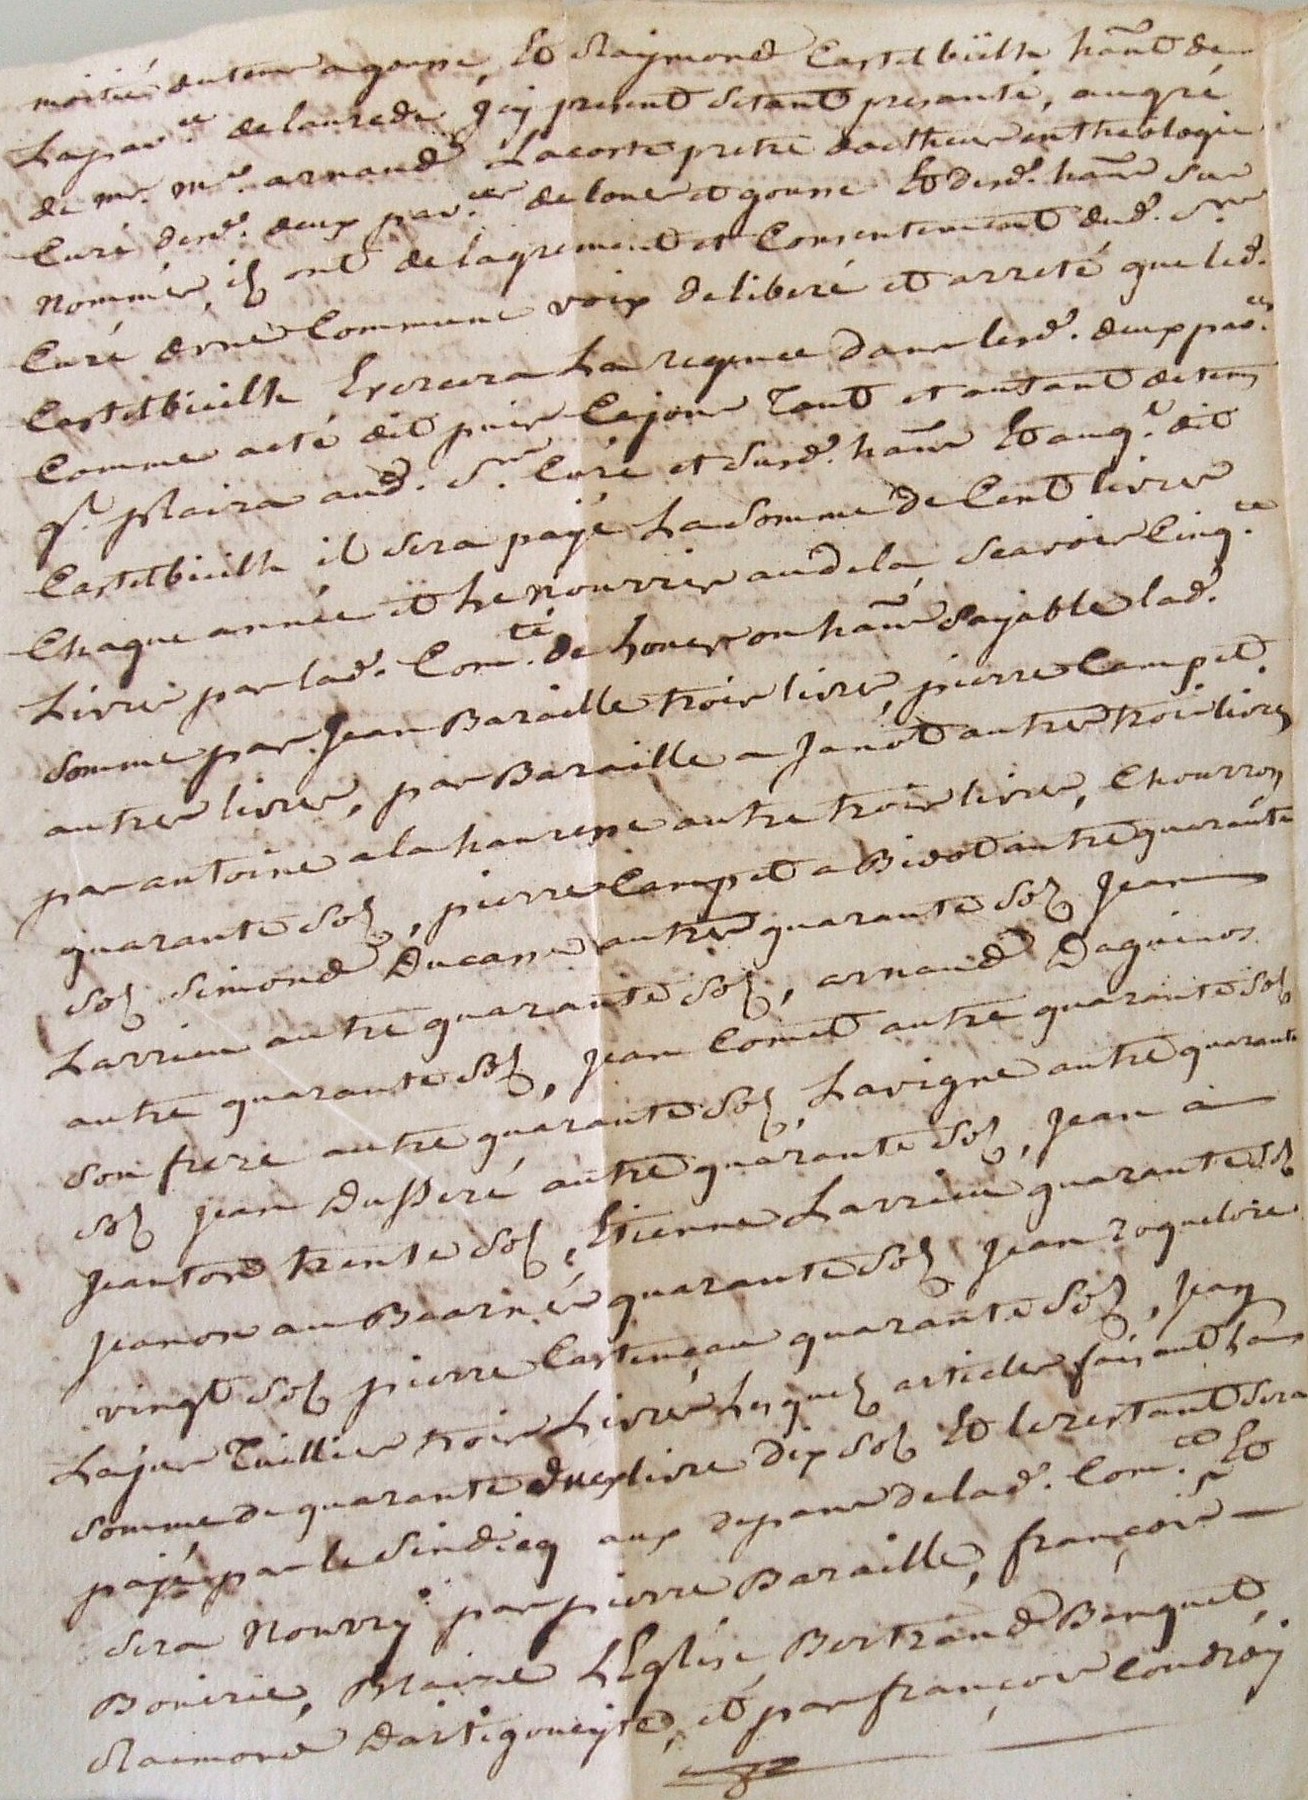 moitié du tems a gousse, Et Raymond Castetbieilh hant de
Lapar.ce de laurede Jcy present Sétant presanté, augré
de mr. me. arnaud Lacoste pretre docttheur en theologie
Curé desd. deux par.ces de louer et gousse Et desd. hans sus
Nommés, ils ont de lagrement et Consentement dud. Sr.
Curé d'vne Commune voix deliberé et arreté que led.
Castetbieilh Exercera La regence dans lesd. deux par.ces
Comme acté dit puis Cejour Tant et autant de tems
q.l plaira aud. Sr. Curé et susd. hans Et auq.l dit
Castetbieilh il sera payé La Somme de Cent livres
Chaque année et Le nourrir audela, Scavoir Cinq.te
Livres par lad. Com.té de Louer en hans payable lad.
Somme par Jean Baraille trois livres, pierre Campet
autres livres, par Baraille a Janot autres trois livres
par antoine a la hausesse autre trois livres, Chourron
quarante Sols, pierre Campet a Bidot autre quarante
Sols Simond Ducasse autres quarante Sols Jean
Larrieu autre quarante Sols, arnaud Daguinos
autre quarante Sols, Jean Comet autre quarante Sols
Son frere autre quarante Sols, Lavigne autre quarante
Sols Jean Dusseré autre quarante Sols, Jean a
Jeanton trente Sols, Etienne Larrieu quarante Sols
Jeanon au Bearnés quarante Sols Jean roquelore
vingt Sols pierre Castengau quarante Sols, Jean
Lajus Tuillier trois Livres Lesquels articles faisant La
Somme de quarante deux livre dix Sols Et le restant sera
payé par le Sindicq aux depans de lad. Com.té Et
Sera Nourry par pierre Baraille, françois
Bonirie, Blaise LEglise, Bertrand Banquet,
Raimond Dartigoueyte, et par françois Coudroy